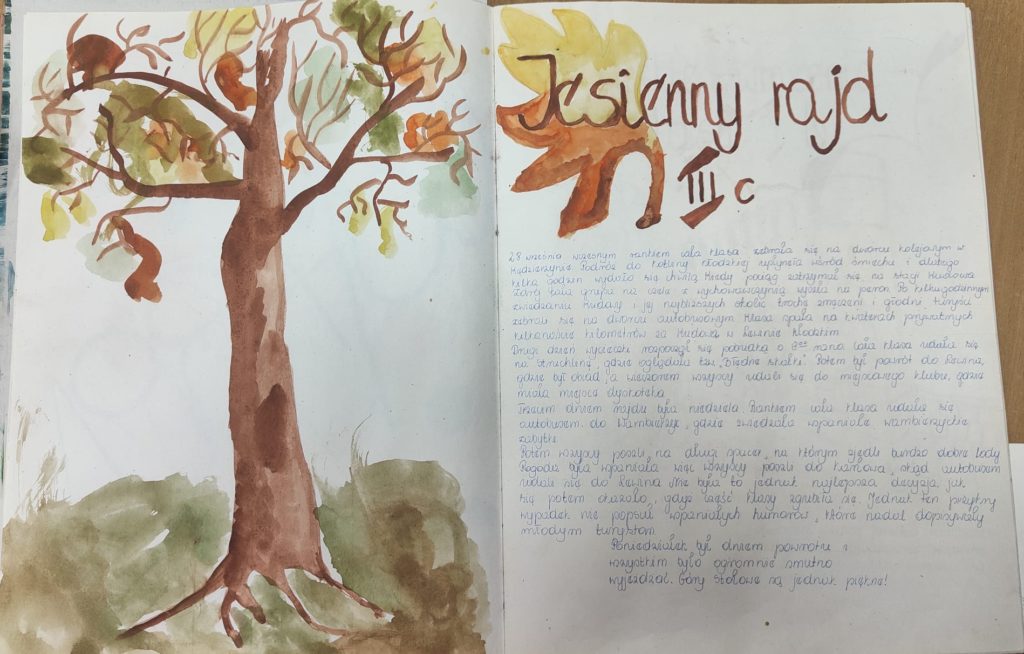 Jesienny rajd
III c
28 września wczesnym rankiem cała klasa zebrała się na dworcu kolejowym w
Kędzierzynie. Podróż do Kotliny Kłodzkiej upłynęła wśród śmiechu i dlatego
kilka godzin wydało się chwilą. Kiedy pociąg zatrzymał się na stacji Kudowa
Zdrój cała grupa na czele z wychowawczynią wyszła na peron. Po kilkugodzinnym
zwiedzaniu Kudowy i jej najbliższych okolic trochę zmęczeni i głodni turyści
zebrali się na dworcu autobusowym. Klasa spała na kwaterach prywatnych
kilkanaście kilometrów za Kudową w Lewinie Kłodzkim.
Drugi dzień wycieczki rozpoczął się pobudką o 8⁰⁰ rano. Cała klasa udała się
na "Szczeliniec", gdzie oglądała też "Błędne skałki". Potem był powrót do Lewina,
gdzie był obiad, a wieczorem wszyscy udali się do miejscowego klubu, gdzie
miała miejsce dyskoteka.
Trzecim dniem rajdu była niedziela. Rankiem cała klasa udała się
autobusem do Wambierzyc, gdzie zwiedzała wspaniałe wambierzyckie
zabytki.
Potem wszyscy poszli na długi spacer, na którym zjedli bardzo dobre lody.
Pogoda była wspaniała więc wszyscy poszli do Karłowa, skąd autobusem
udali się do Lewina. Nie była to jednak najlepsza decyzja, jak
się potem okazało, gdyż część klasy zgubiła się. Jednak ten przykry
wypadek nie popsuł wspaniałych humorów, które nadal dopisywały
młodym turystom.
Poniedziałek był dniem powrotu i
wszystkim było ogromnie smutno
wyjeżdżać. Góry Stołowe są jednak piękne!